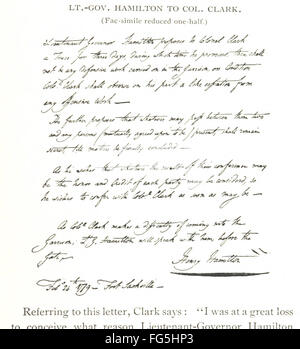 LT.-GOV. HAMILTON TO COL. CLARK.
(Fac-simile reduced one-half.)
Lieutenant Governor Hamilton proposes to Colonel Clark
a Truce for three days, during which time he promises there shall
not in any defensive work carried on in the Garrison on Condition
Colol. Clark shall observe on his part a like cessation from
any offensive work —
He further proposes that whatever may pass between them two
and any persons mutually agreed upon to be present shall remain
secret till matters be finally concluded —
As he wishes that whatever the result of their conference may
be the honor and credit of each party may be considered, so
he wishes to confer with Colol. Clark as soon as may be —
As Colol. Clark makes a difficulty of coming into the
Garrison, Lt. G. Hamilton will speak with him before the
Gate,
Henry Hamilton
Feb. 24th 1779 — Fort Sackville —
Referring to this letter, Clark says: "I was at a great loss
to conceive what reason Lieutenant-Governor Hamilton
alamy
FG5HP3
www.alamy.com